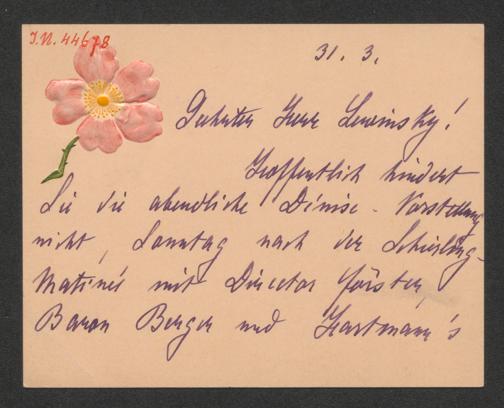 J.N. 44678
31. 3.
Geehrter Herr Lewinsky!
Hoffentlich hindert
Sie die abendliche Denise-Vorstellung
nicht, Sonntag nach der Schierling-
Matinée mit Director Förster,
Baron Berger und Hartmann's